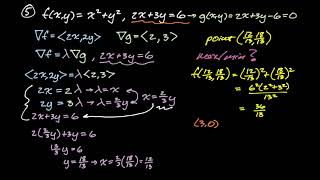 ⑤ f(x,y) = x²+y², 2x+3y=6 → g(x,y)=2x+3y-6=0
∇f = <2x,2y> ∇g = <2,3>
∇f = λ∇g, 2x+3y=6
<2x,2y> = λ<2,3>
2x = 2λ → λ=x
2y = 3λ → λ=⅔y
x=⅔y
2x+3y=6
2(⅔y)+3y=6
13/3 y=6
y=18/13 → x=⅔(18/13)=12/13
point (12/13, 18/13)
max/min?
f(12/13, 18/13) = (12/13)²+(18/13)²
= 6²(2²+3²)/13²
= 36/13
(3,0)